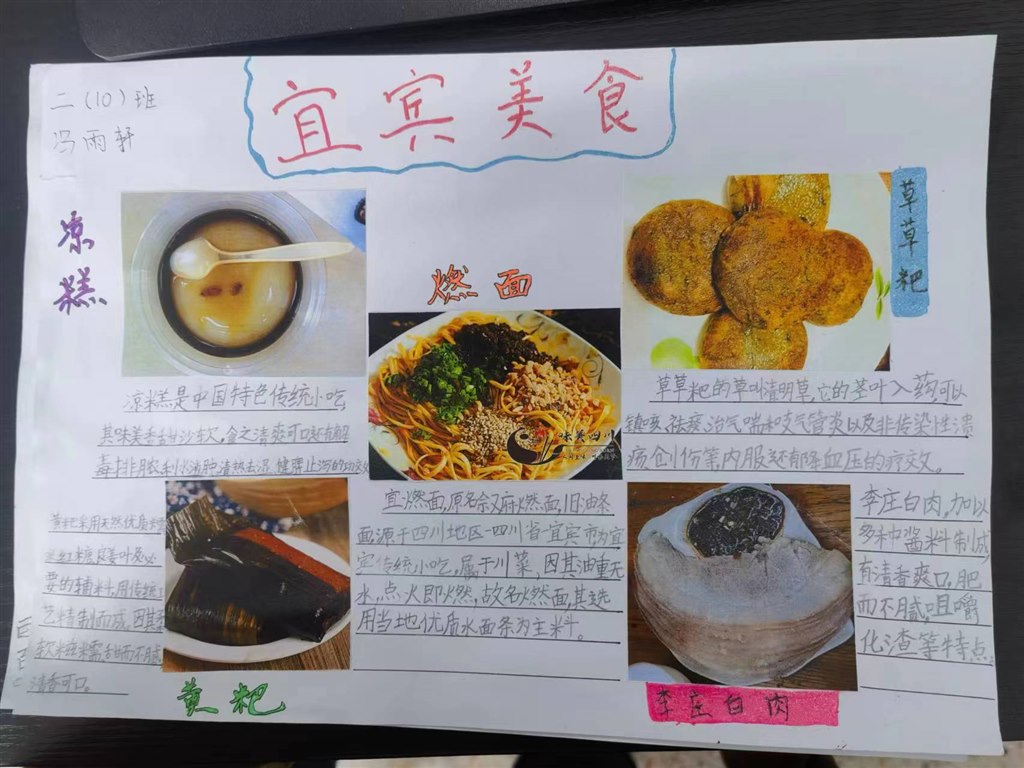 二(10)班
冯雨轩
宜宾美食
凉糕
凉糕是中国特色传统小吃,
其味美香甜沙软,食之清爽可口还有解
毒排脓利水消肿清热去湿,健脾止泻的功效
燃面
味美四川
宜燃面,原名叙府燃面,旧油条
面源于四川地区-四川省宜宾市为宜
宾传统小吃,属于川菜,因其油重无
水,点火即燃,故名燃面,其选
用当地优质水面条为主料。
草草粑
草草粑的草叫清明草,它的茎叶入药可以
镇咳、祛痰、治气喘和支气管炎以及非传染性溃
疡创伤等,内服还有降血压的疗效。
黄粑采用天然优质
红糖良姜叶及必
要的辅料,用传统工
艺精制而成,因其
软米糯,甜而不腻
清香可口。
黄粑
李庄白肉,加以
多种酱料制成,
有清香爽口,肥
而不腻咀嚼
化渣等特点。
李庄白肉